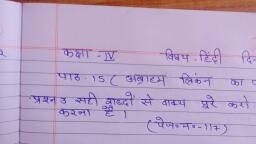 कक्षा - IV विषय - हिंदी दि
पाठ - 15 ( अब्राहम लिंकन का प
प्रश्न 3 सही शब्दों से वाक्य पूरे करो
करना है।
(पेज॰न॰-117)